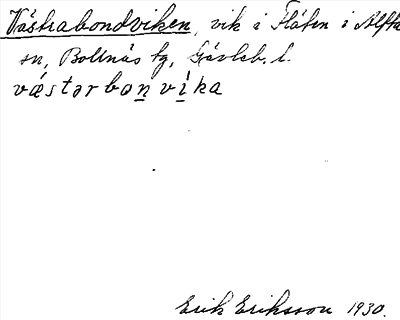 Västrabondviken, vik i Flåten i Alfta
sn, Bollnäs tg, Gävleb. l.
væstərbon vìka
Erik Eriksson 1930.